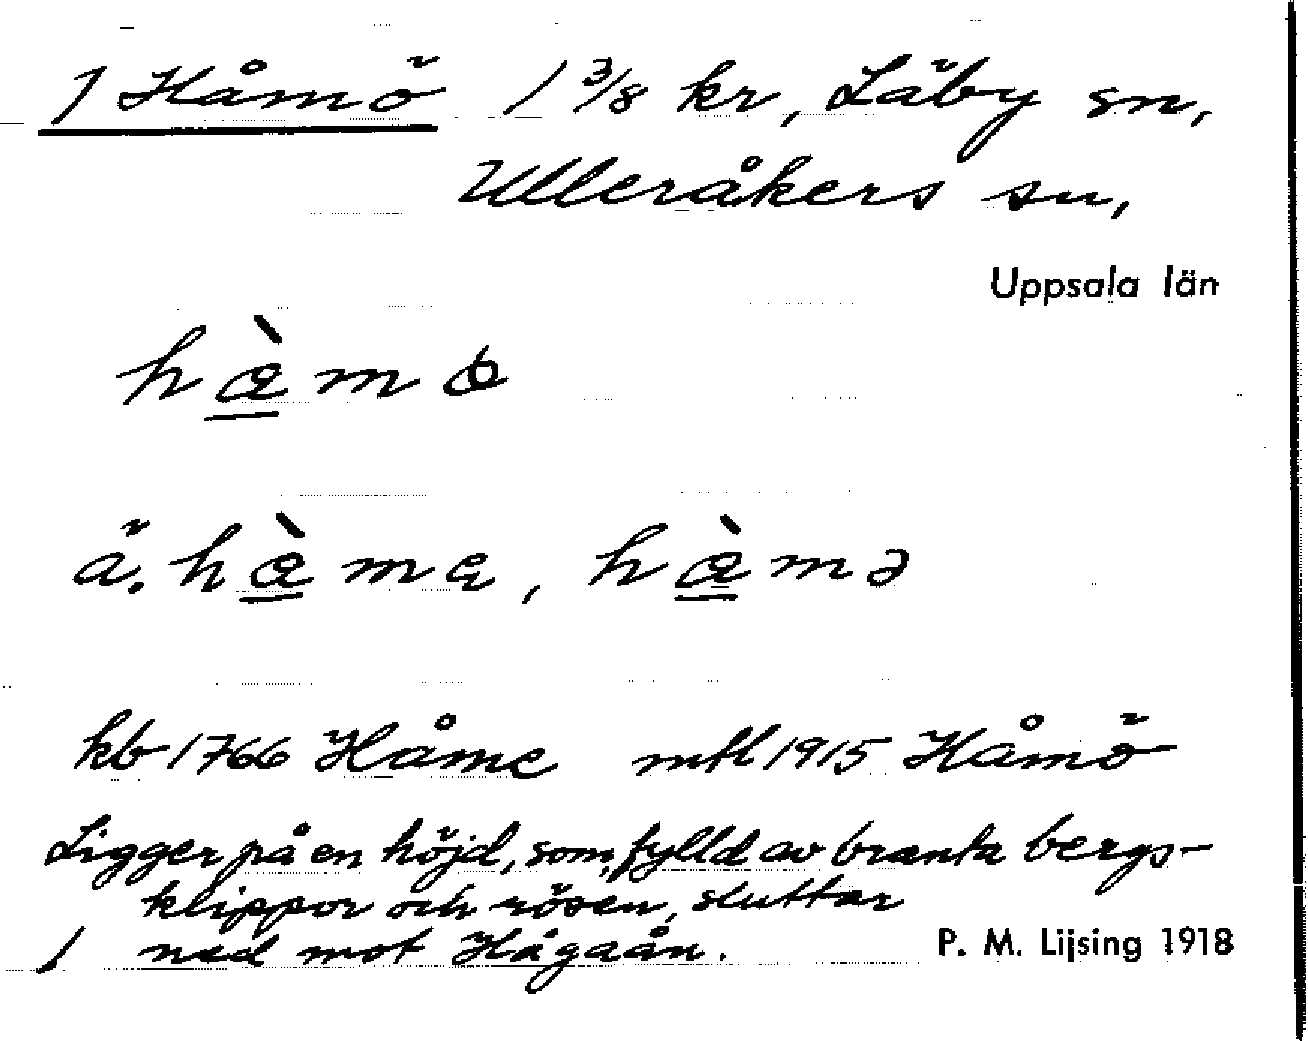 1 Håmö 1 3/8 kr, Läby sn,
Ulleråkers sn,
Uppsala län
kb 1766 Håme mtl 1915 Håmö
Ligger på en höjd, som, fylld av branta bergs-
klippor och rösen, sluttar
ned mot Hågaån.
P. M. Lijsing 1918